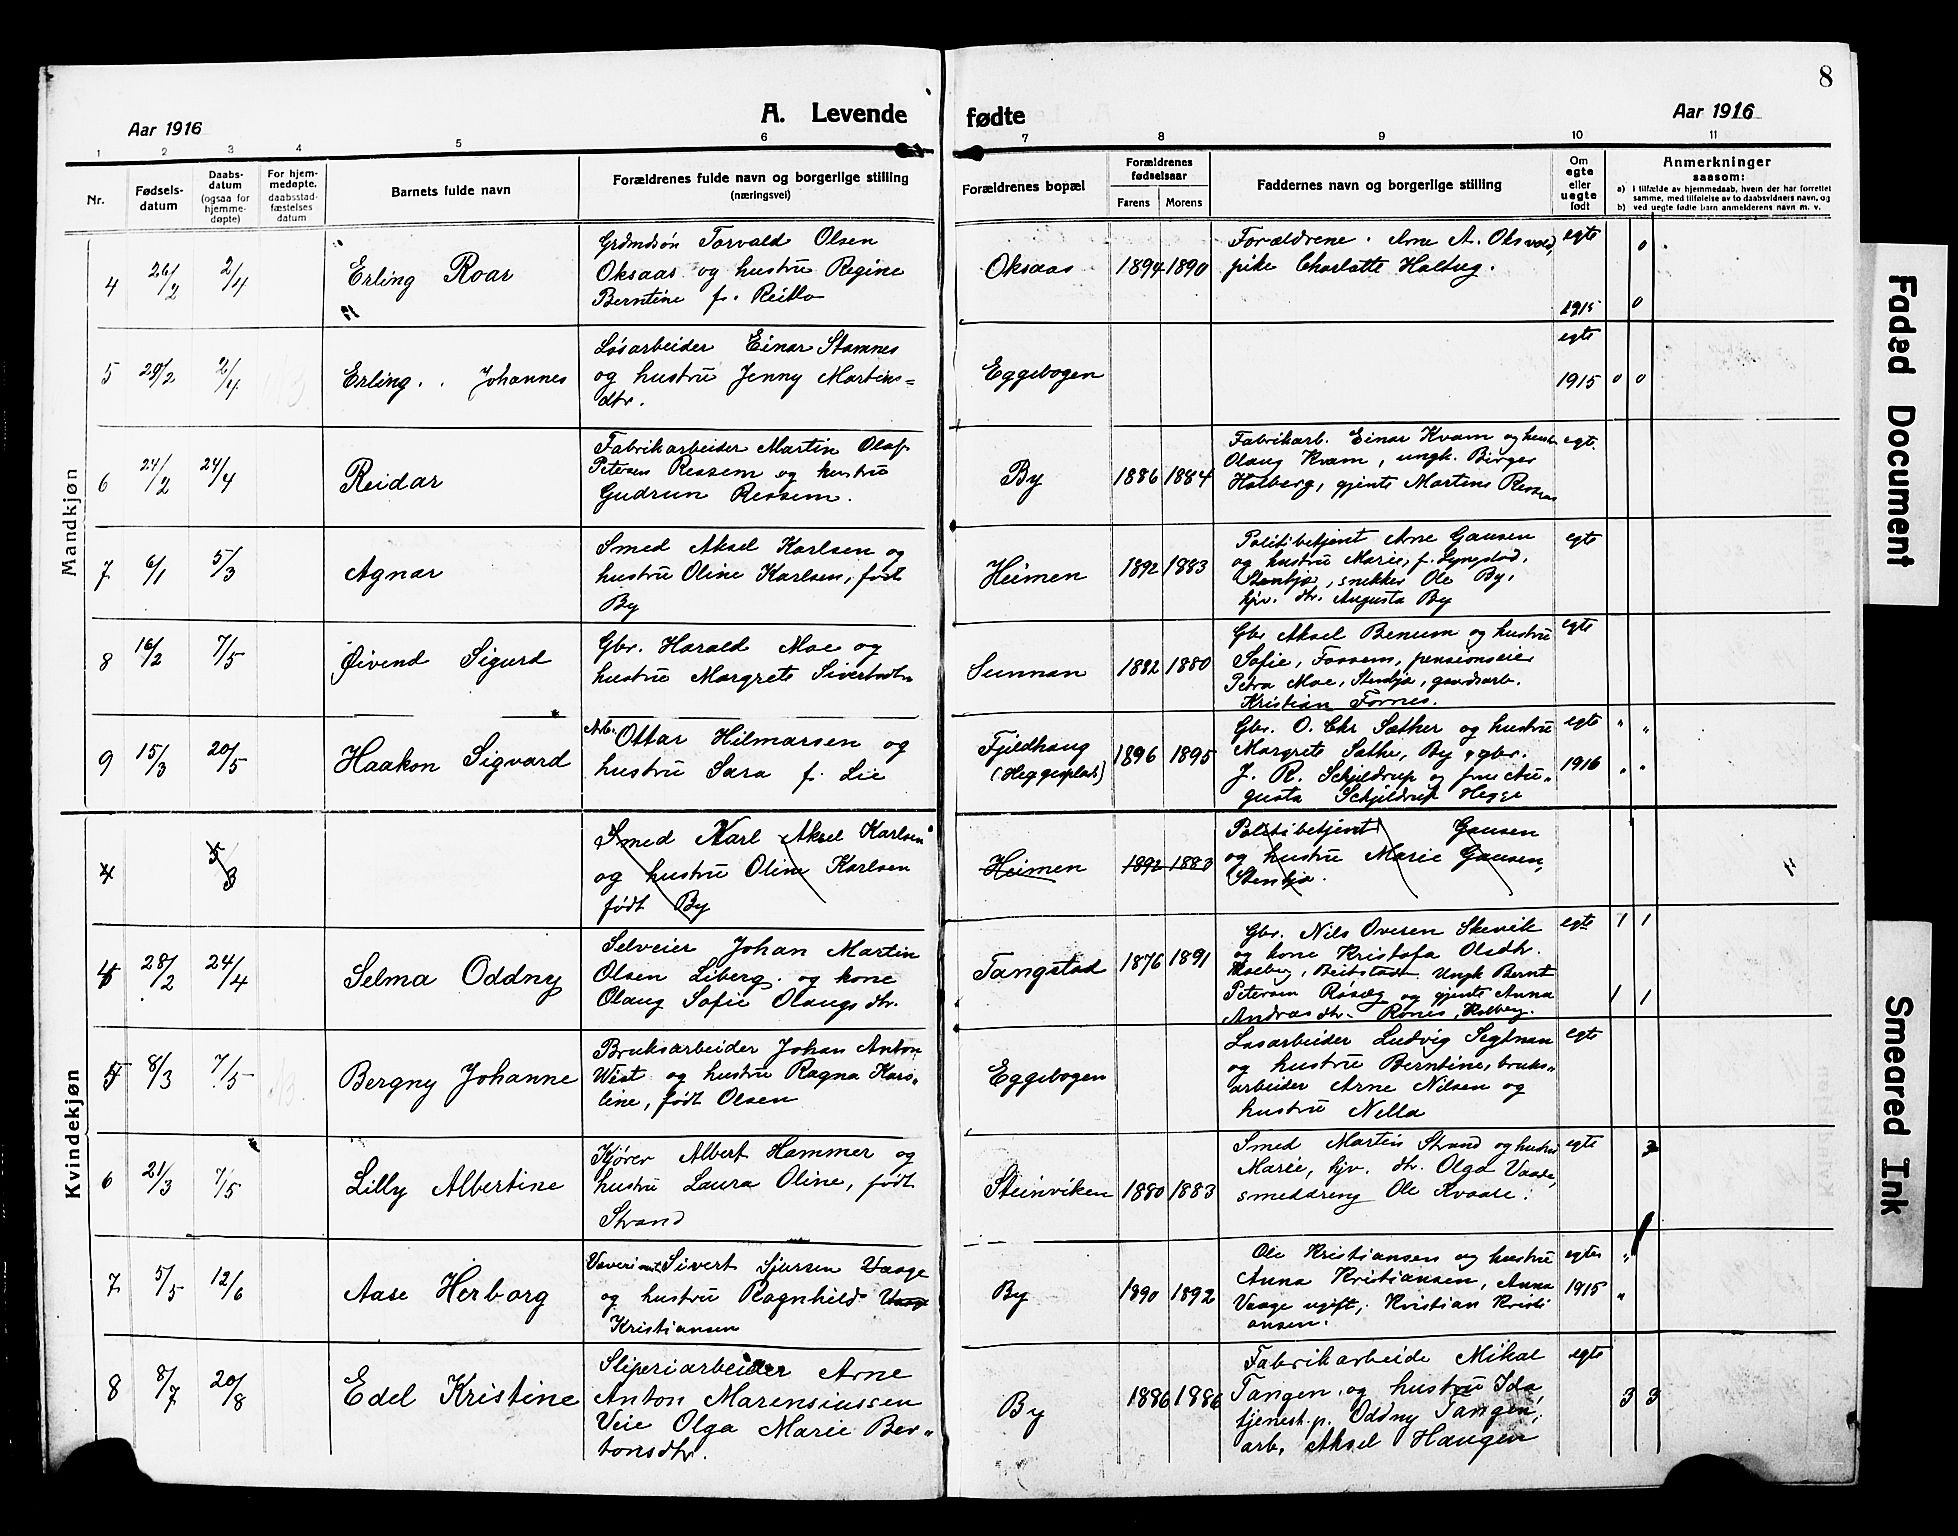 8
Aar 1916
A. Levende
fødte
Aar 1916
1 2 3 4 5 6 7 8 9 10 11
Nr.
Fødsels-
datum
Daabs-
datum
(ogsaa for
hjemme-
døpte)
For hjem-
medøpte,
daabsstad-
fæstelses
datum
Barnets fulde navn
Forældrenes fulde navn og borgerlige stilling
(næringsvei)
Forældrenes bopæl
Forældrenes
fødselsaar
Farens Morens
Faddernes navn og borgerlige stilling
Om
egte
eller
uegte
født
Anmerkninger
saasom:
a) i tilfælde av hjemmedaab, hvem der har forrettet
samme, med tilføielse av to daabsvidners navn, og
b) ved uegte fødte barn anmelderens navn m. v.
Mandkjøn
4 26/2 2/4 Erling Roar
Grdmdsøn Torvald Olsen
Oksaas og hustru Regine
Berntine f.
Oksaas 1894 1890
Forældrene. Arne A. Oksvold,
pike Charlotte Haltug.
egte
1915
5 29/2 2/4 Erling Johannes
Løsarbeider Einar Stamnes
og hustru Jenny Martins=
dtr.
Eggebogen
egte
1915 0 0
6 24/2 24/4 Reidar
Fabrikarbeider Martin Olaf
Petersen Ressem og hustru
Gudrun Ressem.
By 1886 1884
Fabrikarb. Einar Kvam og hustru
Olaug Kvam, ungk. Birger
Holberg, gjente Martine Ressem
egte.
7 6/1 5/3 Agnar
Smed Aksel Karlsen og
hustru Oline Karlsen, født
By
Heimen 1892 1883
Politibetjent Arne Gausen
og hustru Marie, f. Lyngstad,
Stenkjær, snekker Ole By,
hjv. dtr. Augusta By
egte
8 16/2 7/5 Øivend Sigurd
Gbr. Harald Moe og
hustru Margrete Sivertsdtr
Sunnan 1882 1880
Gbr Aksel Benum og hustru
Sofie, Fossem, pensionseier
Petra Moe, Stenkjær, gaardsarb.
Kristian Fornes.
egte
9 15/3 20/5 Haakon Sigvard
Arb. Ottar Hilmarsen og
hustru Sara f. Lie
Fjeldhaug
(Heggesplads)
1896 1895
Gbr. O. Chr Sæther og hustru
Margrete Sæther, By, gbr.
J. R. Schjeldrup og frue Au=
gusta Schjeldrup Hegge
egte
1916
Kvindekjøn
4 5/3
Smed Karl Aksel Karlsen
og hustru Oline Karlsen
født By
Heimen 1892 1883
Politibetjent Gausen
og hustru Marie Gausen,
Stenkjær.
4 28/2 24/4 Selma Oddny
Selveier Johan Martin
Olsen Liberg. og kone
Olaug Sofie Olaugsdtr.
Tangstad 1876 1891
Gbr. Nils Ovesen Skevik
og kone Kristofa Olsdtr.
Holberg, Beitstad. Ungk Bernt
Petersen Røseg og gjente Anna
Andreasdtr. Rones, Holberg.
egte 1 1
1 1
5 8/3 7/5 Bergny Johanne
Bruksarbeider Johan Anton
Wist og hustru Ragna Karo=
line, født Olsen
Eggebogen
Løsarbeider Ludvig Segtnan
og hustru Berntine, bruks=
arbeider Arne Nilsen og
hustru Nella
egte
6 21/3 7/5 Lilly Albertine
Kjører Albert Hammer og
hustru Laura Oline, født
Strand
Steinviken 1880 1883
Smed Martin Strand og hustru
Marie, hjv. dtr. Olga Vaade,
smeddreng Ole Kvaale.
egte 3
7 5/5 12/6 Aase Herborg
Sivert Sjursen Vaage
og hustru Ragnhild Vaage
Kristiansen
By 1890 1892
Ole Kristiansen og hustru
Anna Kristiansen, Anna
Vaage ugift, Kristian Kristi
ansen.
egte
1915
8 8/7 20/8 Edel Kristine
Sliperiarbeider Arne
Anton Marensiussen
Veie Olga Marie Ber=
tonsdtr.
By 1886 1886
Fabrikarbeide Mikal
Tangen, og hustru Ida,
tjenest.p. Oddny Tangen,
arb. Aksel Haugen
egte
3 3
Faded Document
Smeared Ink